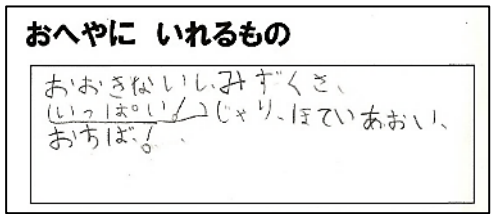 おへやに いれるもの
おおきないし、みずくさ、
(いっぱい!)じゃり、ほていあおい、
おちば!、